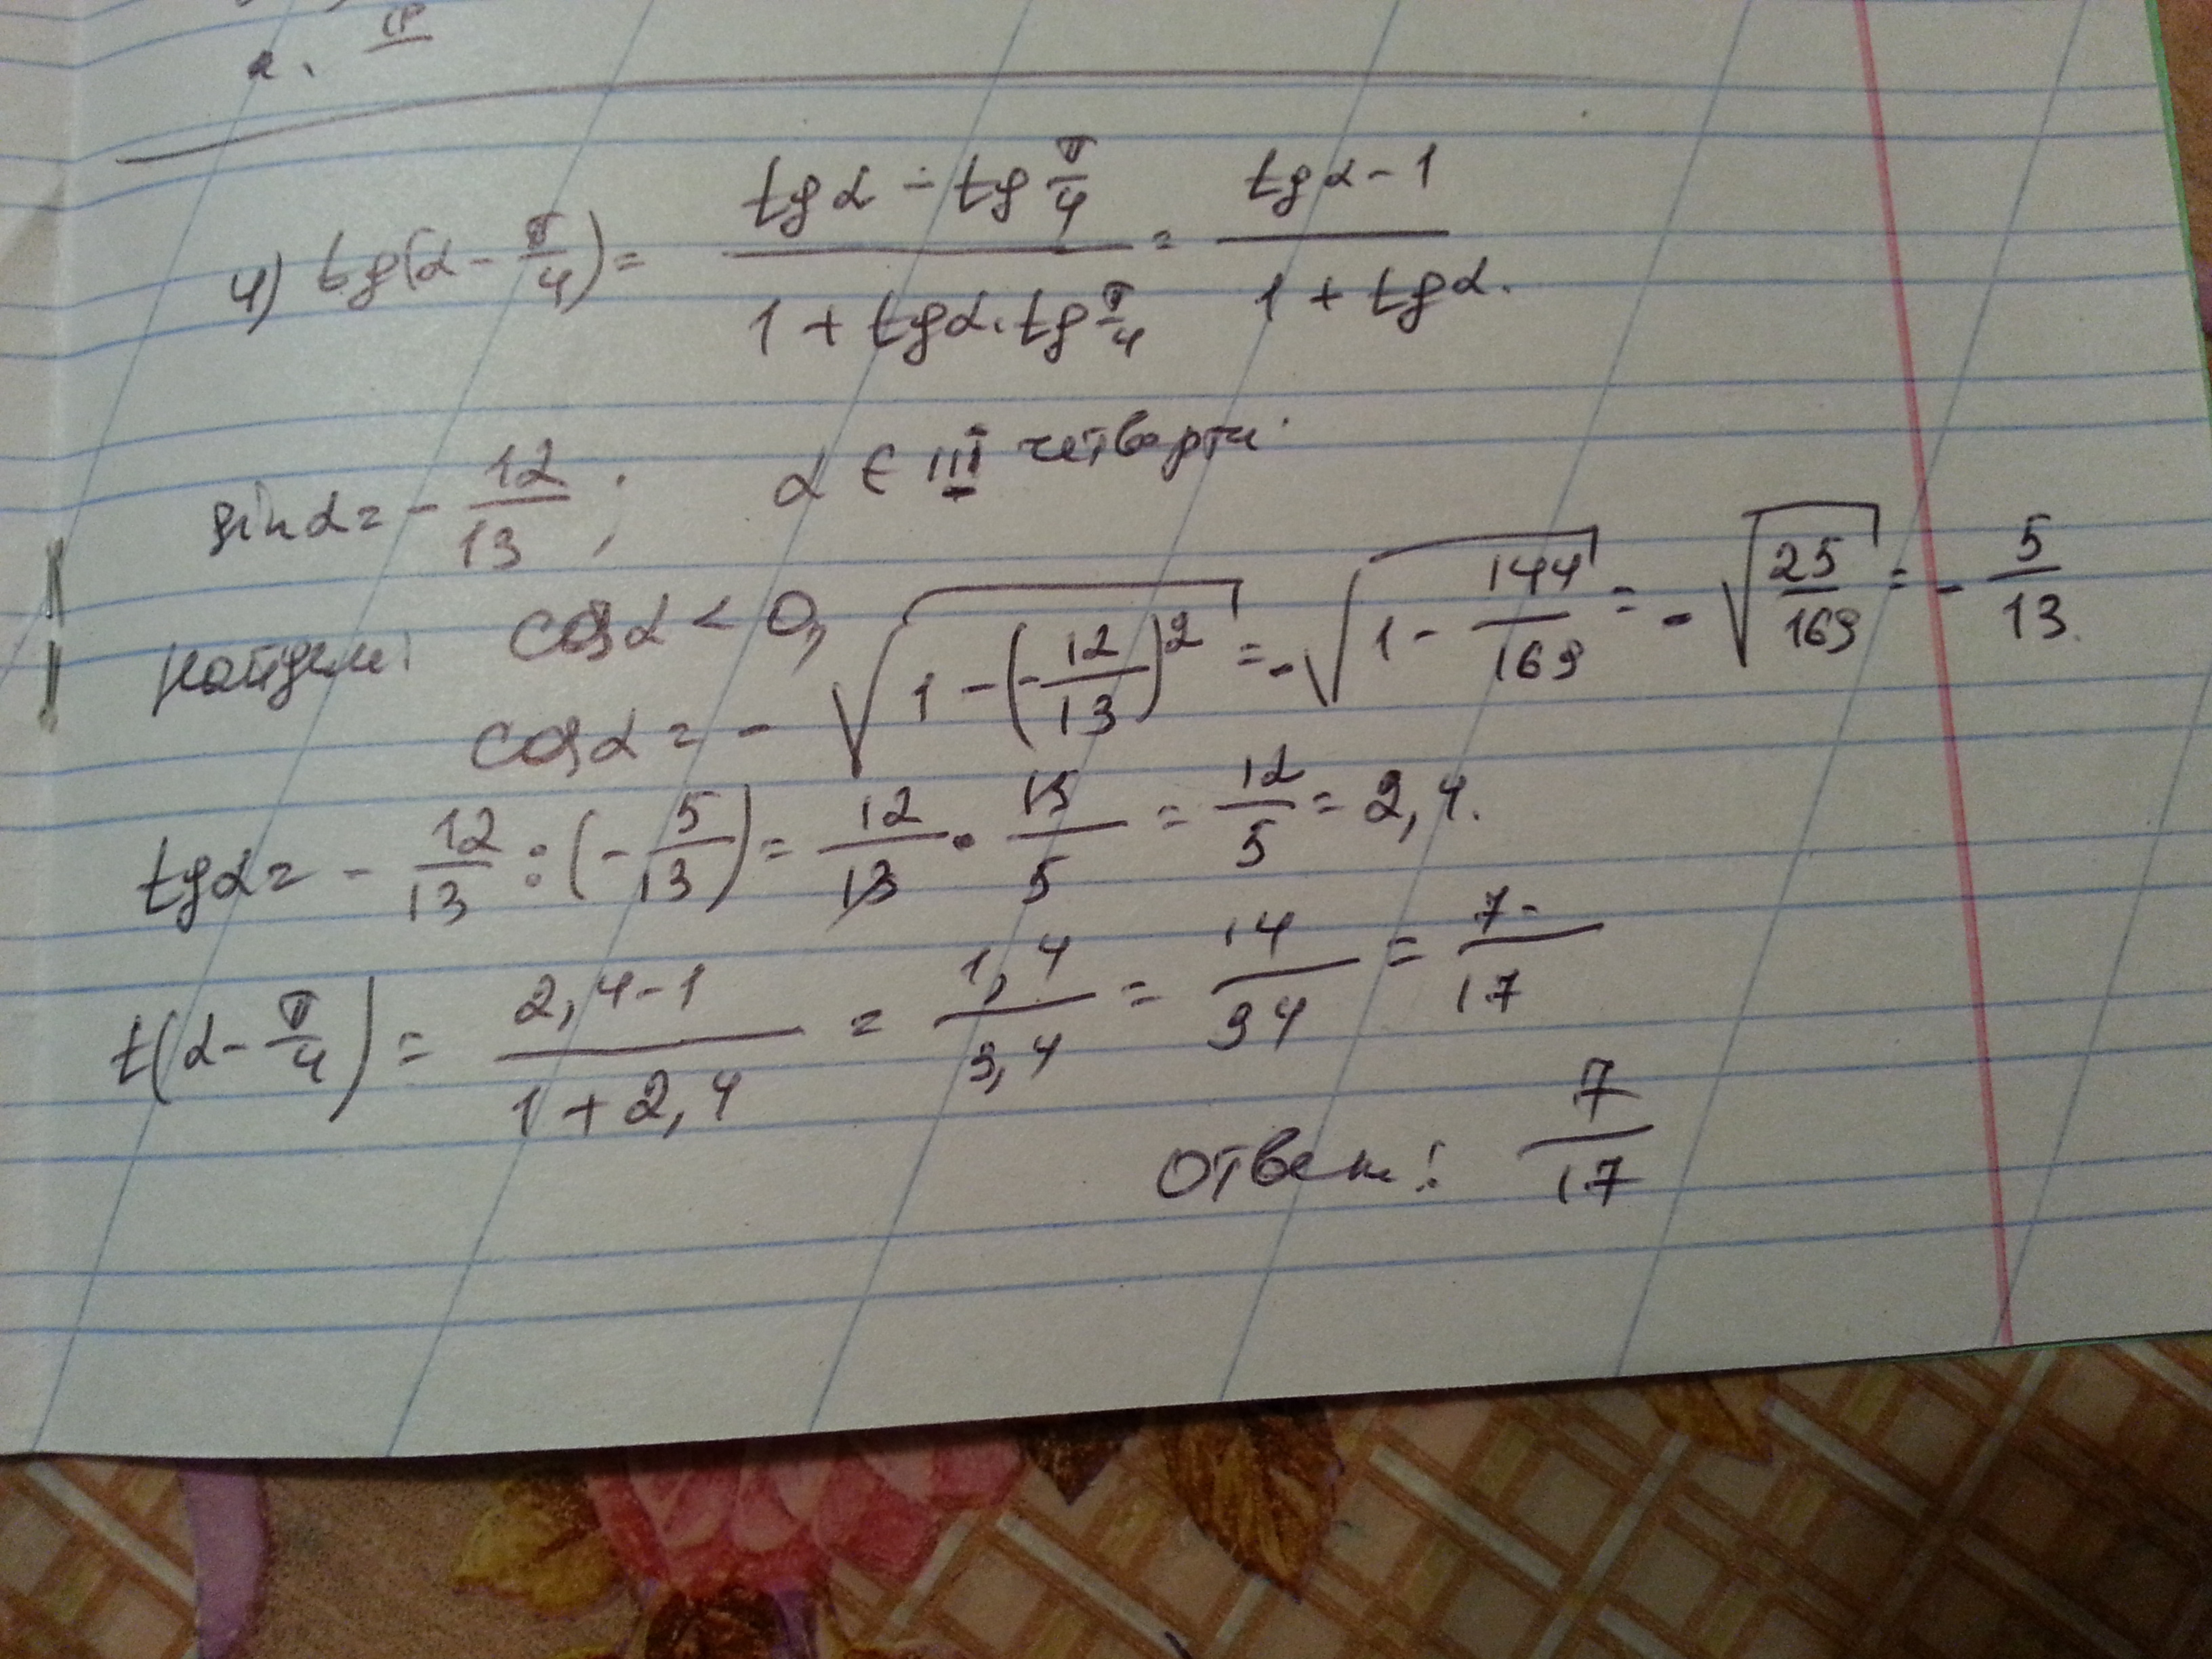 4) tg(α - π/4) = (tgα - tg π/4)/(1 + tgα · tg π/4) = (tgα - 1)/(1 + tgα).
sinα = - 12/13; α ∈ III четверти.
найдем: cosα < 0,
cosα = - √(1 - (-12/13)²) = - √(1 - 144/169) = - √(25/169) = - 5/13.
tgα = - 12/13 : (- 5/13) = 12/13 · 13/5 = 12/5 = 2,4.
t(α - π/4) = (2,4 - 1)/(1 + 2,4) = 1,4/3,4 = 14/34 = 7/17
Ответ: 7/17